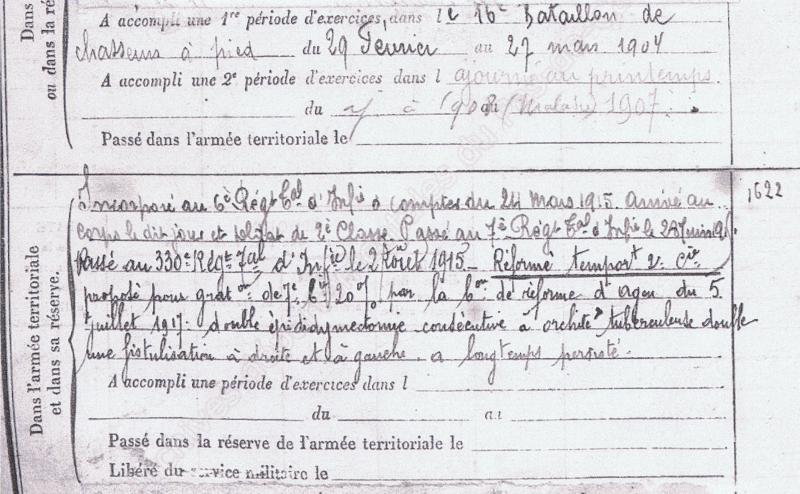 Dans
ou dans la ré
A accompli une 1re période d'exercices, dans le 16e Bataillon de
chasseurs à pied du 29 Février au 27 mars 1904
A accompli une 2e période d'exercices dans l ajourné au printemps
du à 1908 au (malade) 1907.
Passé dans l'armée territoriale le
Dans l'armée territoriale
et dans sa réserve.
1622
Incorporé au 6e Régt Tal d'Infie à compter du 24 mars 1915. Arrivé au
corps le dit jour et soldat de 2e Classe. Passé au 7e Régt Tal d'Infie le juin 19
Passé au 330e Régt Tal d'Infie le 2 Août 1915 – Réformé tempore 2e Cie
proposé pour grat on de 7e 20% par la Con de réforme d'Agen du 5
juillet 1917. double épididymectomie consécutive à orchite tuberculeuse double
une fistulisation à droite et à gauche a longtemps persisté.
A accompli une période d'exercices dans l
du au
Passé dans la réserve de l'armée territoriale le
Libéré du service militaire le